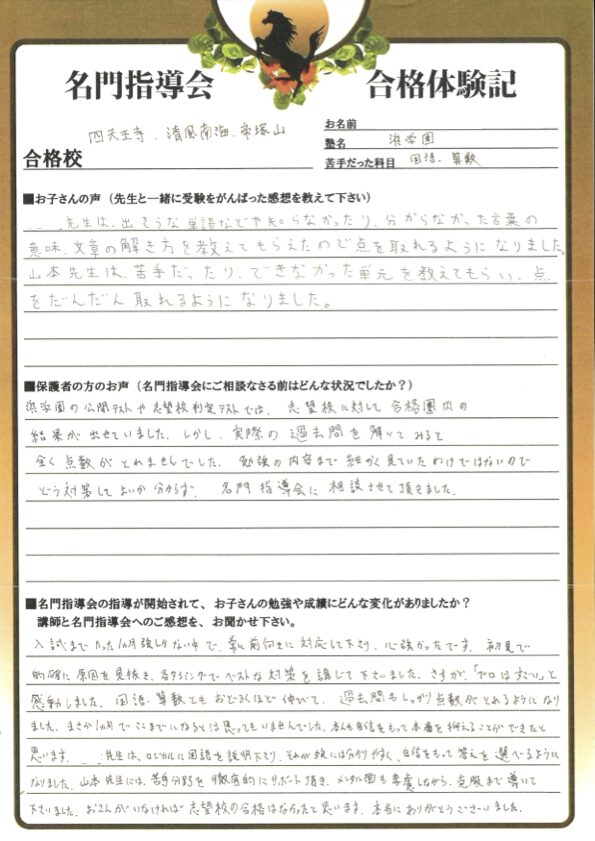 名門指導会
合格体験記
四天王寺、清風南海、帝塚山
合格校
お名前
塾名 浜学園
苦手だった科目 国語、算数
■お子さんの声（先生と一緒に受験をがんばった感想を教えて下さい）
先生は、出そうな単語などや知らなかったり、分からなかった言葉の
意味、文章の解き方を教えてもらえたので点を取れるようになりました。
山本先生は、苦手だったり、できなかった単元を教えてもらい、点
をだんだん取れるようになりました。
■保護者の方のお声（名門指導会にご相談なさる前はどんな状況でしたか？）
浜学園の公開テストや志望校判定テストでは、志望校に対して合格圏内の
結果が出せていました。しかし、実際の過去問を解いてみると
全く点数がとれませんでした。勉強の内容まで細かく見ていたわけではないので
どう対策してよいか分からず、名門指導会に相談させて頂きました。
■名門指導会の指導が開始されて、お子さんの勉強や成績にどんな変化がありましたか？
講師と名門指導会へのご感想を、お聞かせ下さい。
入試までたった1ヵ月強しかない中で、常に前向きに対応して下さり、心強かったです。初見で
的確に原因を見抜き、各タイミングでベストな対策を講じて下さいました。さすが、「プロはすごい」と
感動しました。国語・算数ともおどろくほど伸びて、過去問もしっかり点数がとれるようになり
ました。まさか1ヵ月でここまでになるとは思ってもいませんでした。本人も自信をもって本番を迎えることができたと
思います。先生は、ロジカルに国語を説明下さり、それが娘には分かりやすく、自信をもって答えを選べるように
なりました。山本先生には、苦手分野を徹底的にサポート頂き、メンタル面も考慮しながら、克服まで導いて
下さいました。お2人がいなければ志望校の合格はなかったと思います。本当にありがとうございました。